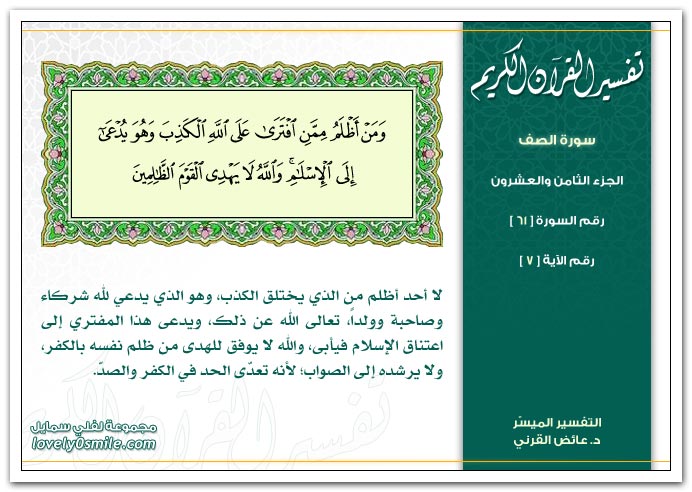 تفسير القرآن الكريم
سورة الصف
الجزء الثامن والعشرون
رقم السورة [ ٦١ ]
رقم الآية [ ٧ ]
وَمَنْ أَظْلَمُ مِمَّنِ ٱفْتَرَىٰ عَلَى ٱللَّهِ ٱلْكَذِبَ وَهُوَ يُدْعَىٰٓ
إِلَى ٱلْإِسْلَٰمِ ۚ وَٱللَّهُ لَا يَهْدِى ٱلْقَوْمَ ٱلظَّٰلِمِينَ
لا أحد أظلم من الذي يختلق الكذب، وهو الذي يدعي لله شركاء
وصاحبة وولداً، تعالى الله عن ذلك، ويدعى هذا المفتري إلى
اعتناق الإسلام فيأبى، والله لا يوفق للهدى من ظلم نفسه بالكفر،
ولا يرشده إلى الصواب؛ لأنه تعدّى الحد في الكفر والصدّ.
التفسير الميسّر
د. عائض القرني
مجموعة لفلي سمايل
lovely0smile.com
تفسير القرآن الكريم